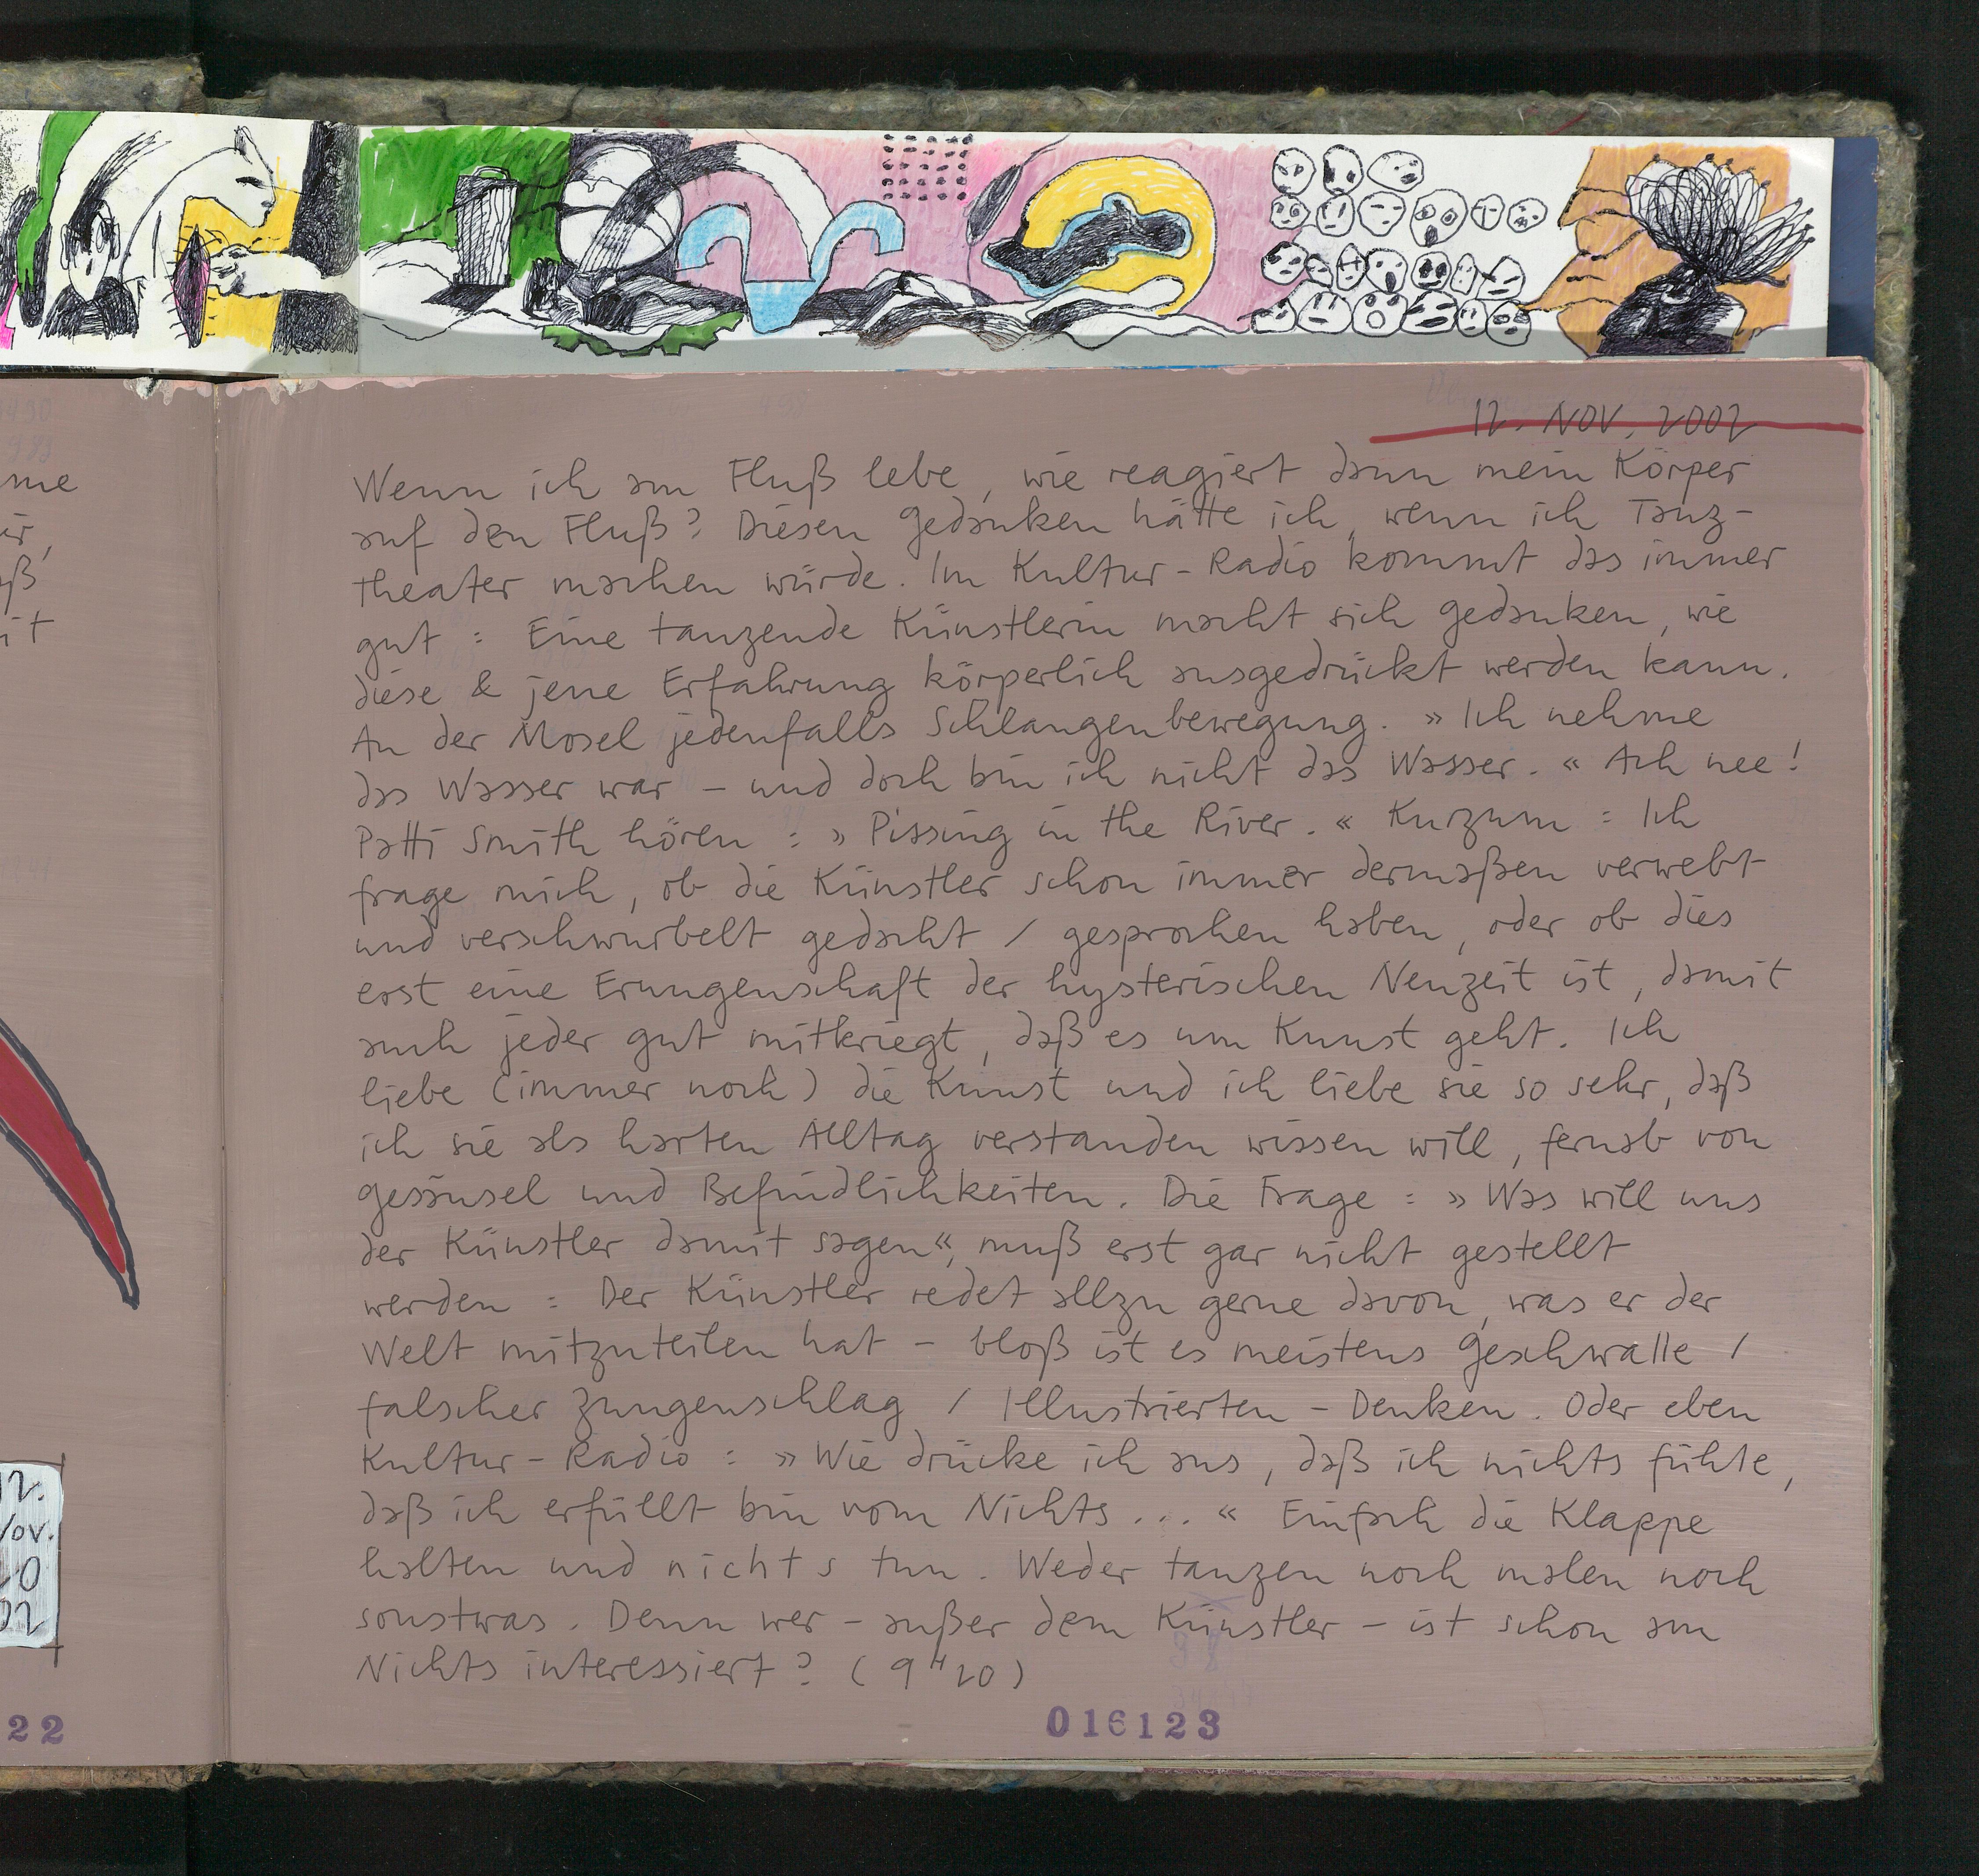 12. NOV. 2002
Wenn ich am Fluß lebe, wie reagiert dann mein Körper
auf den Fluß? Diesen Gedanken hätte ich, wenn ich Tanz-
theater machen würde. Im Kultur-Radio kommt das immer
gut: Eine tanzende Künstlerin macht sich Gedanken, wie
diese & jene Erfahrung körperlich ausgedrückt werden kann.
An der Mosel jedenfalls Schlangenbewegung. »Ich nehme
das Wasser war – und doch bin ich nicht das Wasser.« Ach nee!
Patti Smith hören: »Pissing in the River.« Kurzum: Ich
frage mich, ob die Künstler schon immer dermaßen verwebt
und verschwurbelt gedacht / gesprochen haben, oder ob dies
erst eine Erungenschaft der hysterischen Neuzeit ist, damit
auch jeder gut mitkriegt, daß es um Kunst geht. Ich
liebe (immer noch) die Kunst und ich liebe sie so sehr, daß
ich sie als harten Alltag verstanden wissen will, fernab von
Gesäusel und Befindlichkeiten. Die Frage: »Was will uns
der Künstler damit sagen«, muß erst gar nicht gestellt
werden: Der Künstler redet allzu gerne davon, was er der
Welt mitzuteilen hat – bloß ist es meistens Geschwalle /
falscher Zungenschlag / Illustrierten-Denken. Oder eben
Kultur-Radio: »Wie drücke ich aus, daß ich nichts fühle,
daß ich erfüllt bin vom Nichts...« Einfach die Klappe
halten und nichts tun. Weder tanzen noch malen noch
sonstwas. Denn wer – außer dem Künstler – ist schon am
Nichts interessiert? (9 H 20)
016123
me
ir,
aß
it
12.
Nov.
20
02
22